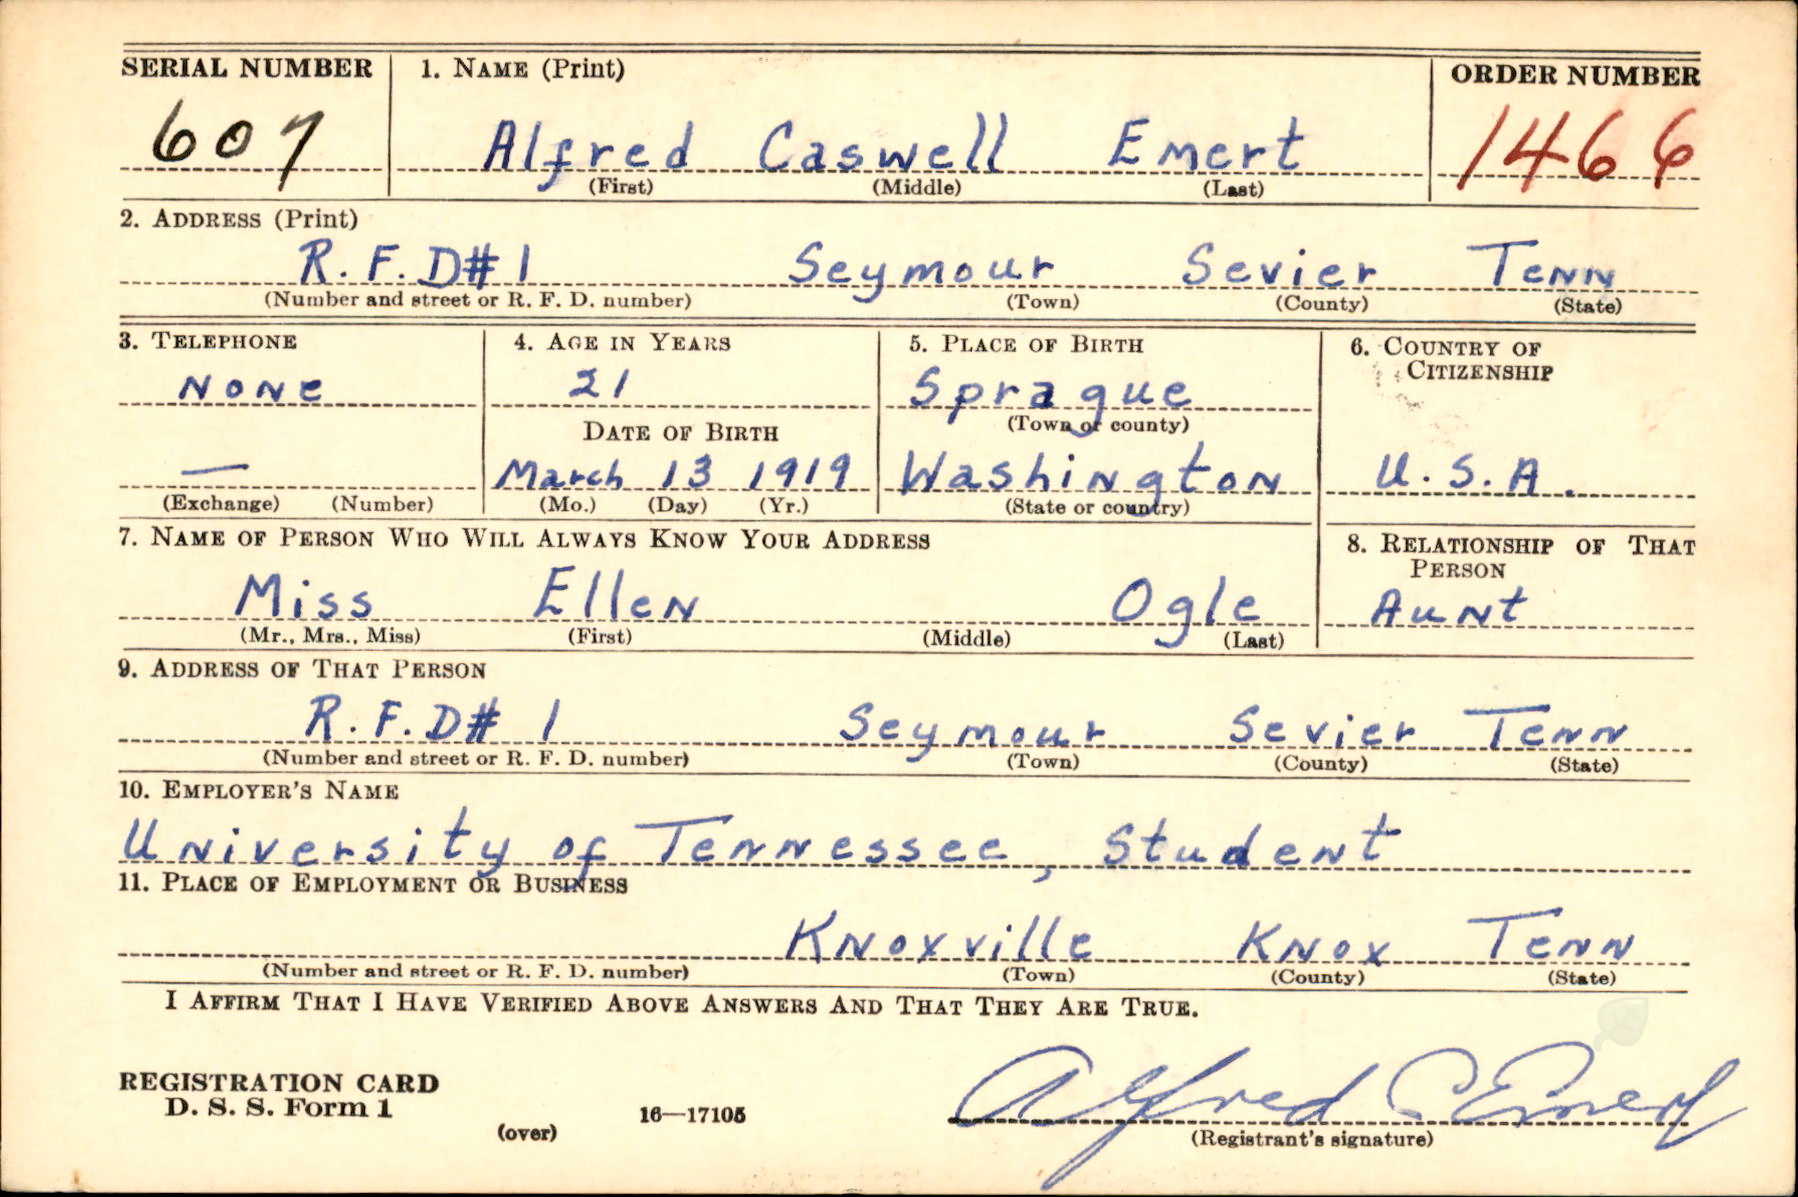 SERIAL NUMBER 1. NAME (Print) ORDER NUMBER
607 Alfred Caswell Emert 1466
(First) (Middle) (Last)
2. ADDRESS (Print)
R.F.D# 1 Seymour Sevier Tenn
(Number and street or R. F. D. number) (Town) (County) (State)
3. TELEPHONE 4. AGE IN YEARS 5. PLACE OF BIRTH 6. COUNTRY OF
CITIZENSHIP
None 21 Sprague
(Town or county)
DATE OF BIRTH
— March 13 1919 Washington U.S.A.
(Exchange) (Number) (Mo.) (Day) (Yr.) (State or country)
7. NAME OF PERSON WHO WILL ALWAYS KNOW YOUR ADDRESS 8. RELATIONSHIP OF THAT
PERSON
Miss Ellen Ogle Aunt
(Mr., Mrs., Miss) (First) (Middle) (Last)
9. ADDRESS OF THAT PERSON
R.F.D# 1 Seymour Sevier Tenn
(Number and street or R. F. D. number) (Town) (County) (State)
10. EMPLOYER'S NAME
University of Tennessee, Student
11. PLACE OF EMPLOYMENT OR BUSINESS
Knoxville Knox Tenn
(Number and street or R. F. D. number) (Town) (County) (State)
I AFFIRM THAT I HAVE VERIFIED ABOVE ANSWERS AND THAT THEY ARE TRUE.
REGISTRATION CARD
D. S. S. Form 1 16—17105 Alfred C Emert
(over) (Registrant's signature)